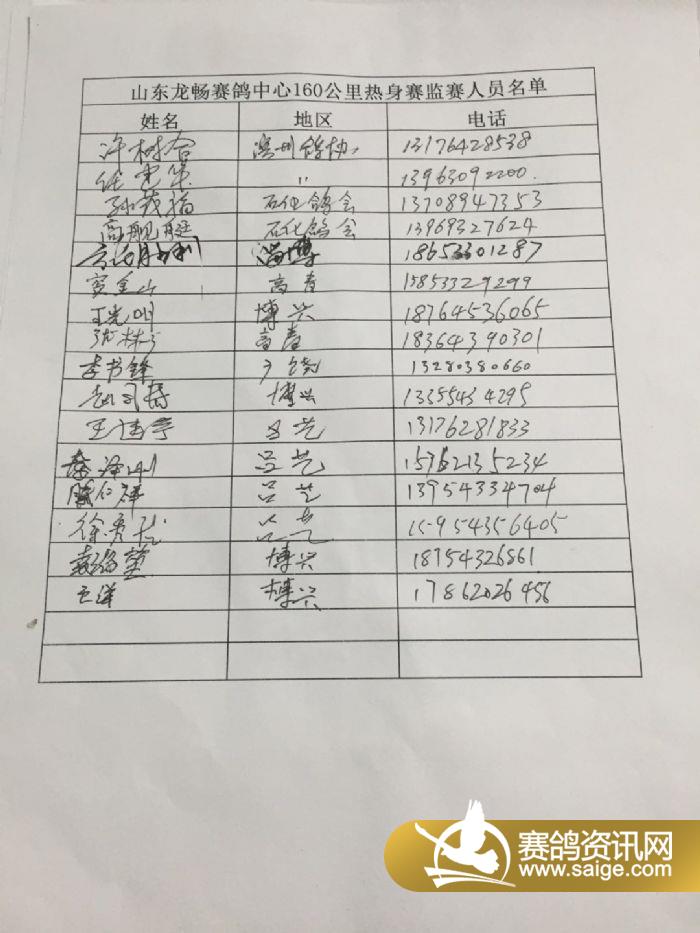 山东龙畅赛鸽中心160公里热身赛监赛人员名单
姓名 地区 电话
许树合 滨州鸽协 13176428538
任 〃 13963092200
孙茂指 石化鸽会 13708947353
高舰艇 石化鸽会 13969327624
淄博 18653301287
贾金山 高青 15853329299
王光明 博兴 18764536065
高青 18364390301
李书锋 广饶 13280380660
博兴 13355434295
王佳亭 吕艺 13176281833
秦泽刚 吕艺 15762135234
滕仁祥 吕艺 13954334704
徐秀 吕艺 15954356405
博兴 18754326861
王洋 博兴 17862026456
赛鸽资讯网
www.saige.com